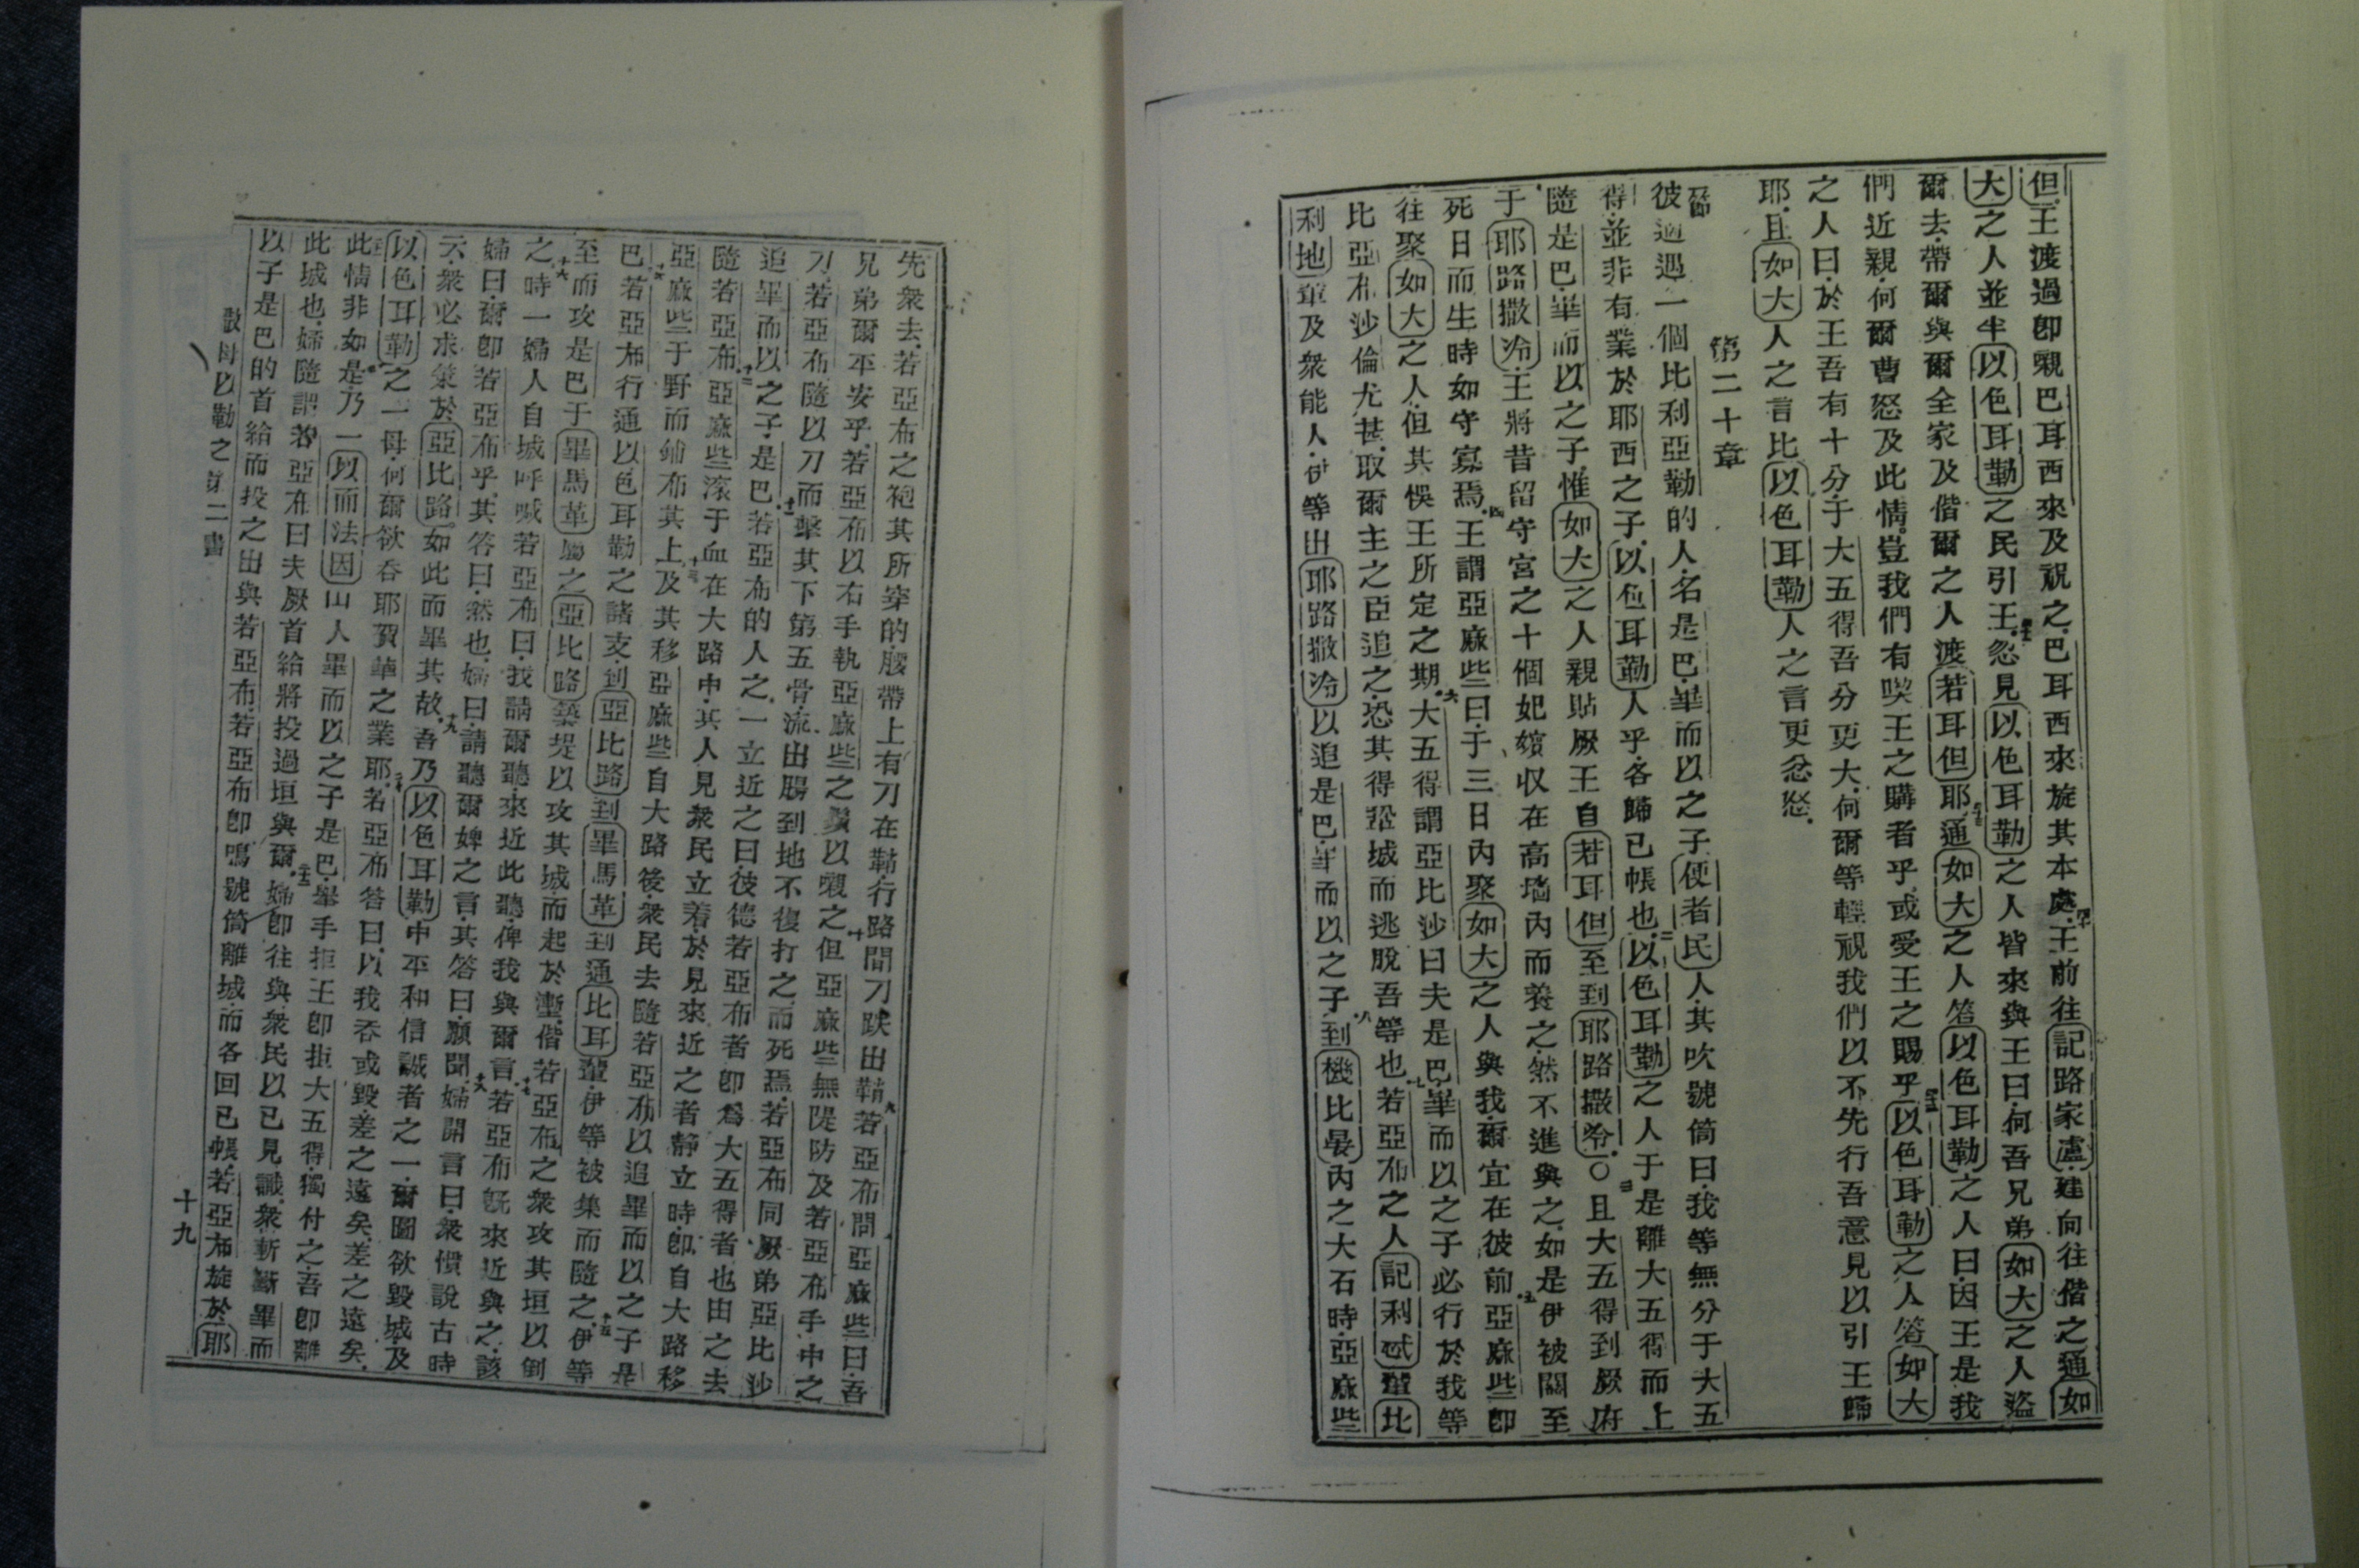 但王渡過卽親巴耳西來及祝之巴耳西來旋其本處王前往記路家盧連向往偕之通如
大之人並半以色耳勒之民引王忽見以色耳勒之人皆來與王曰何吾兄弟如大之人盜
爾去帶爾與爾全家及偕爾之人渡若耳但耶通如大之人答以色耳勒之人曰因王是我
們近親何爾曹怒及此情豈我們有喫王之購者乎或受王之賜乎以色耳勒之人答如大
之人曰於王吾有十分于大五得吾分更大何爾等輕視我們以不先行吾意見以引王歸
耶且如大人之言比以色耳勒人之言更忿怒
第二十章
彼適遇一個比利亞勒的人名是巴畢而以之子便者民人其吹號筒曰我等無分于大五
得並非有業於耶西之子以色耳勒人乎各歸已帳也以色耳勒之人于是離大五得而上
隨是巴畢而以之子惟如大之人親貼厥王自若耳但至到耶路撒冷○且大五得到厥府
于耶路撒冷王將昔留守宮之十個妃嬪収在高墻內而養之然不進與之如是伊被關至
死日而生時如守寡焉王謂亞麻些曰于三日內聚如大之人與我爾宜在彼前亞麻些卽
往聚如大之人但其悞王所定之期大五得謂亞比沙曰夫是巴畢而以之子必行於我等
比亞布沙倫尤甚取爾主之臣追之恐其得\城而逃脫吾等也若亞布之人記利\輩比
利地輩及衆能人伊等出耶路撒冷以追是巴畢而以之子到機比晏內之大石時亞麻些
先衆去若亞布之袍其所穿的腰帶上有刀在鞘行路間刀跌出鞘若亞布問亞麻些曰吾
兄弟爾平安乎若亞布以右手執亞麻些之鬚以親之但亞麻些無隄防及若亞布手中之
刀若亞布隨以刀而擊其下第五骨流出腸到地不復打之而死焉若亞布同厥弟亞比沙
追畢而以之子是巴若亞布的人之一立近之曰彼德若亞布者卽爲大五得者也由之去
隨若亞布亞麻些滚于血在大路中其人見衆民立着於見來近之者靜立時卽自大路移
亞麻些于野而鋪布其上及其移亞麻些自大路後衆民去隨若亞布以追畢而以之子是
巴若亞布行通以色耳勒之諸支到亞比路到畢馬革到通比耳輩伊等被集而隨之伊等
至而攻是巴于畢馬革屬之亞比路築堤以攻其城而起於壍偕若亞布之衆攻其垣以倒
之時一婦人自城呼喊若亞布曰我請爾聽來近此聽俾我與爾言若亞布旣來近與之該
婦曰爾卽若亞布乎其答曰然也婦曰請聽爾婢之言其答曰願聞婦開言曰衆慣說古時
云衆必求策於亞比路如此而畢其故吾乃以色耳勒中平和信誠者之一爾圖欲毀城及
以色耳勒之一母何爾欲吞耶賀華之業耶若亞布答曰以我吞或毀差之遠矣差之遠矣
此情非如是乃一以而法因山人畢而以之子是巴舉手拒王卽拒大五得獨付之吾卽離
此城也婦隨謂若亞布曰夫厥首給將投過垣與爾婦卽往與衆民以已見識衆斬斷畢而
以子是巴的首給而投之出與若亞布若亞布卽鳴號筒離城而各回已帳若亞布旋於耶
撒母以勒之第二書
十九